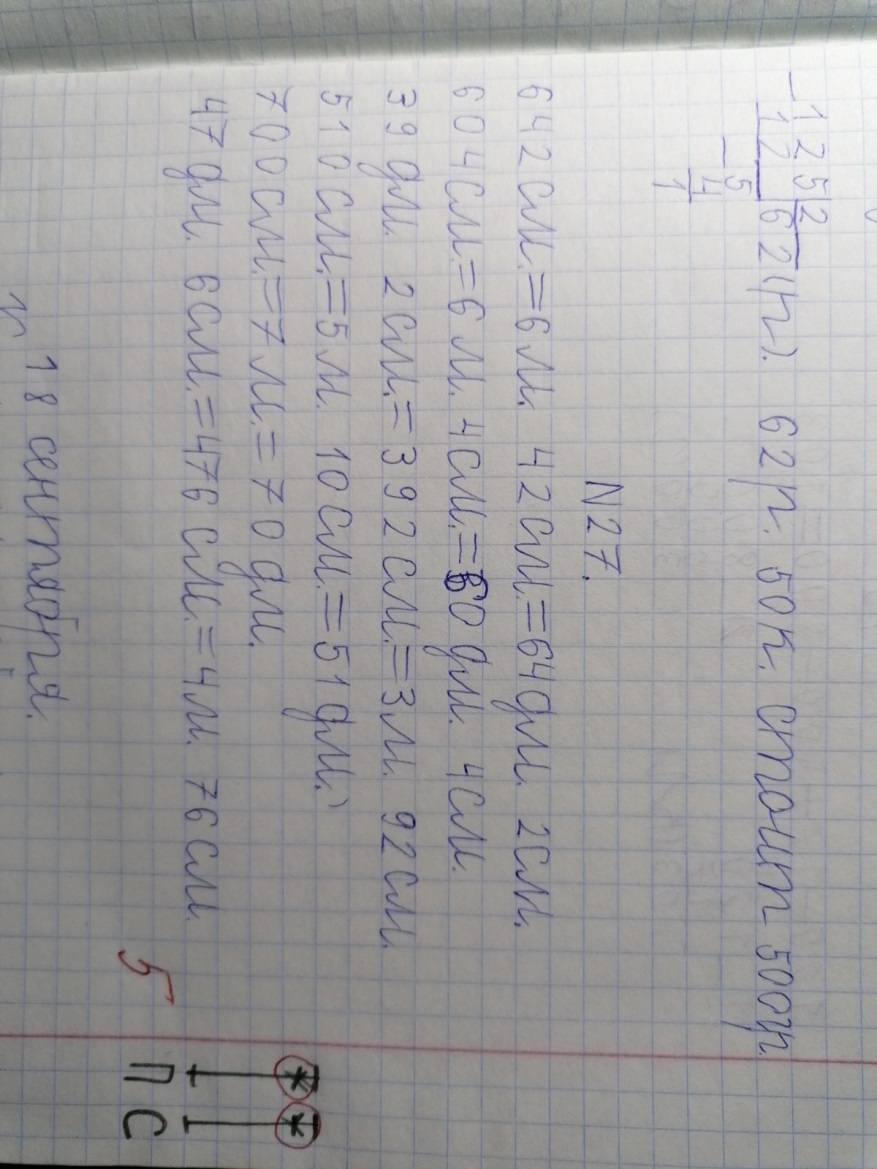 125|2
12 62(р). 62р. 50к. стоит 500гр
5
4
1
N27.
642см.=6м. 42см.=64дм. 2см.
604см=6м. 4см.=60дм. 4см.
39дм. 2см.=392см.=3м. 92см.
510см.=5м. 10см.=51дм.
700см.=7м.=70дм.
47дм. 6см.=476см.=4м. 76см.
5
П С
18 сентября.